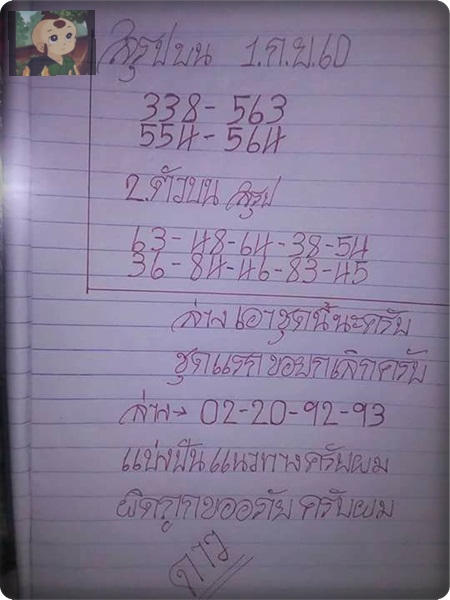 สรุปบน 1.ก.ย.60
338-563
554-564
2.ตัวบน สรุป
63-48-64-38-54
36-84-46-83-45
ล่างเอาชุดนี้นะครับ
ชุดแรกขอยกเลิกครับ
ล่าง→ 02-20-92-93
แบ่งปันแนวทางครับผม
ผิดถูกขออภัย ครับผม